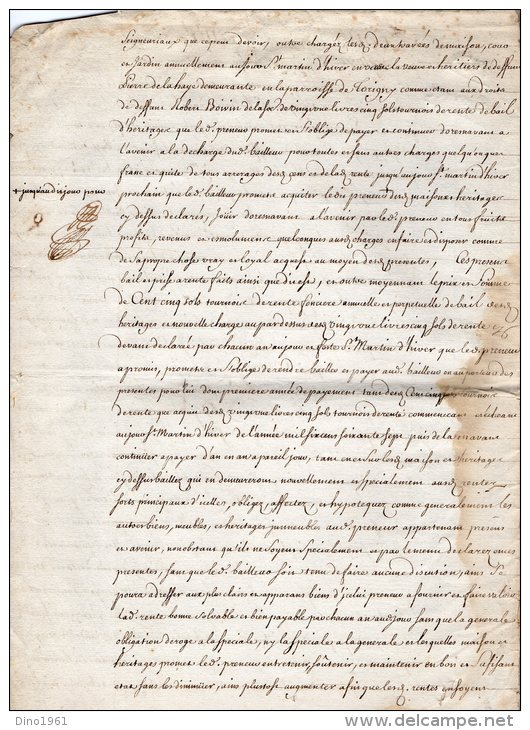 seigneuriaux que ce peut devoir, outre chargéz lesd. deux travées de maison, cour
et jardin annuellement au jour St martin d'hiver envers la veuve et heritiers de deffunt
Pierre de la haye demeurante en la parroisse de comme etant aux droits
de deffunt Robert Boivin de la so.e de vingt une livres cinq sols tournois de rente de bail
d'heritages que led. preneur promet et s'oblige de payer et continuer dorenavant
a l'avenir a la decharge dud. bailleur pour toutes et sans autres charges quelquonques
franc et quite de tous arrerages desd. cens et de lad. rente jusqu'au jour St martin d'hiver
+ jusqu'audit jour pour
prochain que led. bailleur promet acquiter led. preneur desd. maison et heritages
cy dessus declarés, joüir dorenavant a l'avenir par led. preneur en tous fruicts
profits, revenus et emoluments quelconques ausd. charges en faire et disposer comme
de sa propre chose vray et loyal acquest au moyen desd. presentes, Ces presens
bail et prise a rente faits ainsi que dit est, et outre moyennant le prix et somme
de Cent cinq sols tournois de rente fonciere annuelle et perpetuelle de bail desd.
heritages et nouvelle charge au par dessus desd. vingt une livres cinq sols de rente cy
devant declarée par chacun an au jour et feste St Martin d'hiver que led. preneur
a promis, promet et s'oblige de rendre bailler et payer aud. bailleur ou au porteur des
presentes pour lui dont premiere année de payement tant desd. Cent cinq sols tournois
de rente que aquit desd. vingt une livres cinq sols tournois de rente commencera et echeant
au jour St Martin d'hiver de l'année mil six cens soixante sept puis de la en avant
continüer a payer d'an en an a pareil jour, tant et sur lesd. maison et heritages
cy dessus baillez qui en demeureront nouvellement et specialement ausd. rentes
sorts principaux d'icelles, obligez, affectez, et hypotequez comme generalement les
autres biens, meubles, et heritages immeubles aud. preneur appartenant presens
et avenir, nonobstant qu'ils ne soyent specialement et par le menu declarez en ces
presentes, sans que led. bailleur soit tenu de faire aucune discution, ains se
poura adresser aux plus clairs et apparans biens d'icelui preneur a fournir et faire valoir
lad. rente bonne solvable et bien payable par chacun an aud. jour sans que la generale
obligation deroge a la speciale, ny la speciale a la generale et lesquelles maison et
heritages promet led. preneur entretenir, soûtenir, et maintenir en bon et suffisant
etat sans les diminüer, ains plustost augmenter afin que lesd. rentes en soyent
Dino1961
delcampe.net